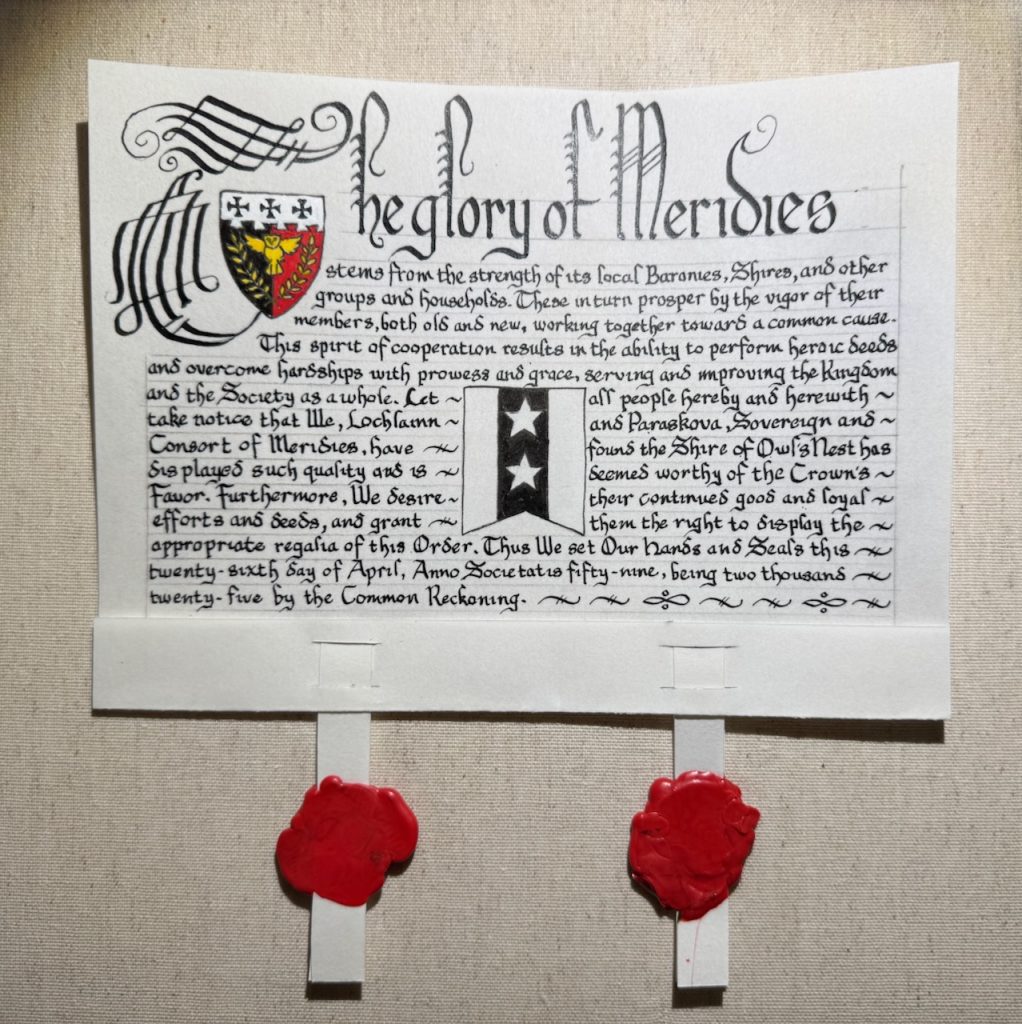 The glory of Meridies
stems from the strength of its local Baronies, Shires, and other
groups and households. These in turn prosper by the vigor of their
members, both old and new, working together toward a common cause.
This spirit of cooperation results in the ability to perform heroic deeds
and overcome hardships with prowess and grace, serving and improving the Kingdom
and the Society as a whole. Let ~ all people hereby and herewith ~
take notice that We, Lochlainn ~ and Paraskova, Sovereign and ~
Consort of Meridies, have ~ found the Shire of Owl's Nest has
displayed such quality and is ~ deemed worthy of the Crown's ~
Favor. Furthermore, We desire ~ their continued good and loyal ~
efforts and deeds, and grant ~ them the right to display the ~
appropriate regalia of this Order. Thus We set Our Hands and Seals this ~
twenty-sixth day of April, Anno Societatis fifty-nine, being two thousand ~
twenty-five by the Common Reckoning.